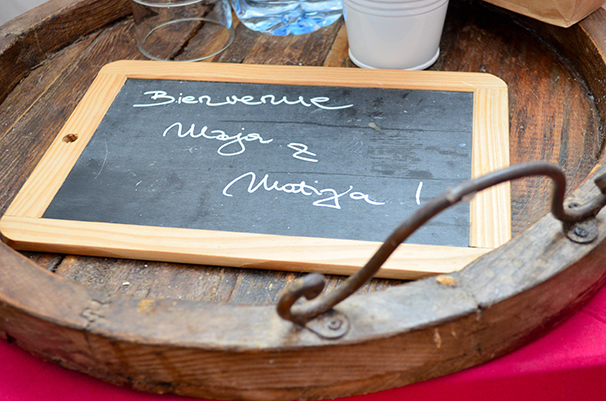 Bienvenue
Maja &
Matiza !